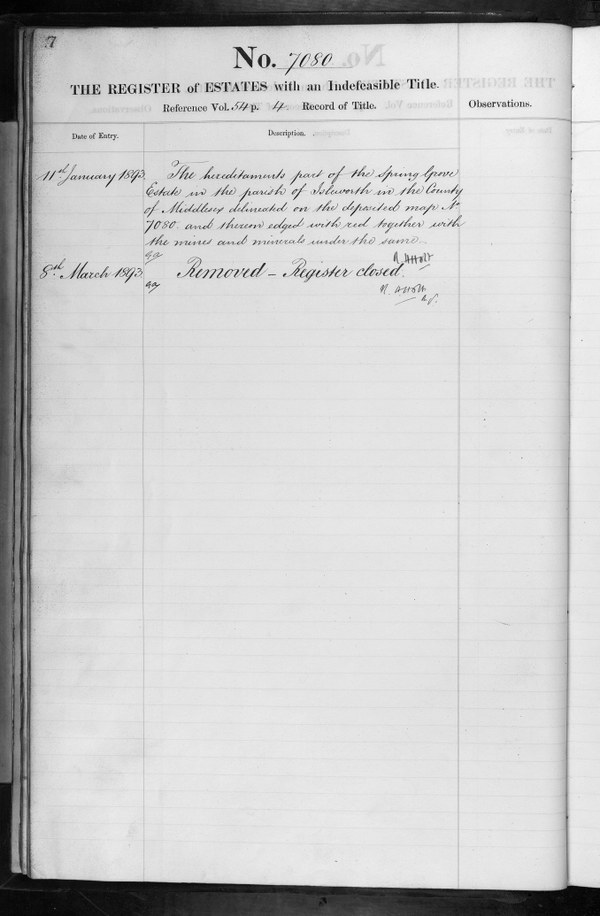 7
No. 7080
THE REGISTER of ESTATES with an Indefeasible Title.
Reference Vol. 54 p. 4 Record of Title.
Observations.
Date of Entry.
Description.
11th January 1893
The hereditaments part of the Spring Grove
Estate in the parish of Isleworth in the County
of Middlesex delineated on the deposited map No
7080 and therein edged with red together with
the mines and minerals under the same
8th March 1893
Removed - Register closed.